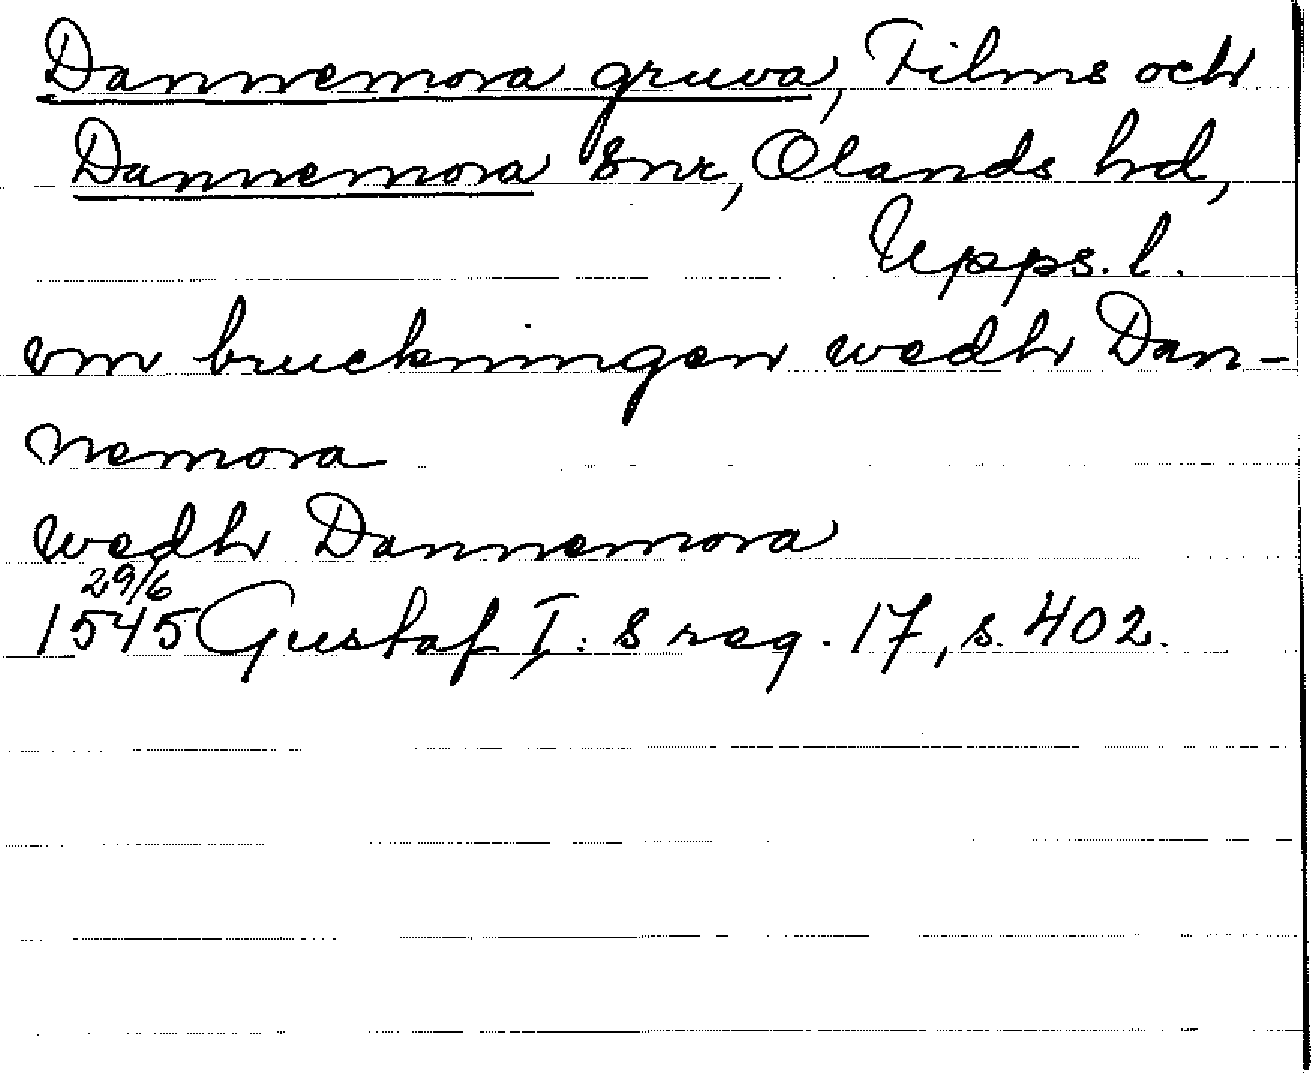 Dannemora gruva, Films och
Dannemora snr, Olands hd,
Upps. l.
om bruckningen wedh Dan-
nemora
wedh Dannemora
29/6
1545 Gustaf I:s reg. 17, s. 402.